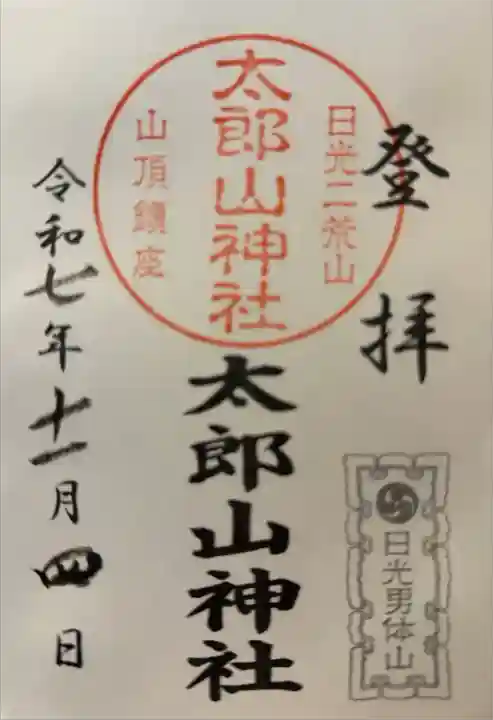 登拝
日光二荒山
太郎山神社
山頂鎮座
日光男体山
太郎山神社
令和七年十一月四日